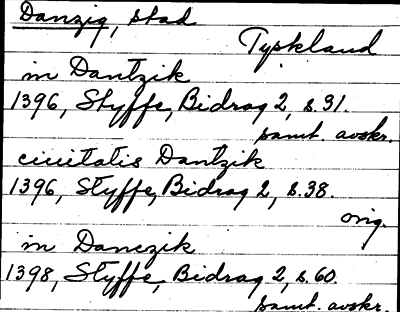 Danzig, stad
Tyskland
in Dantzik
1396, Styffe, Bidrag 2, s. 31.
samt. avskr.
ciuitatis Dantzik
1396, Styffe, Bidrag 2, s. 38.
orig.
in Danczik
1398, Styffe, Bidrag 2, s. 60.
samt. avskr.